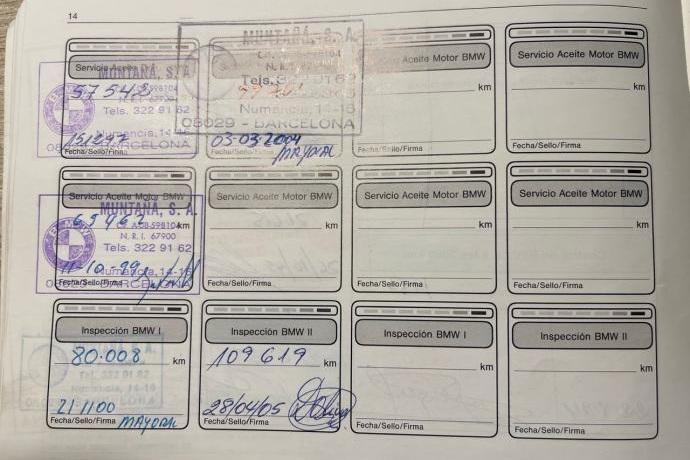 14
Servicio Aceite
57542
MUNTAÑA, S. A.
Tels. 322 91 62
Numancia, 14-16
BARCELONA
Fecha/Sello/Firma
MUNTAÑA, S. A.
Tels.
Numancia, 14-16
08029 - BARCELONA
03-03-2004
MAYORAL
Fecha/Sello/Firma
Servicio Aceite Motor BMW
km
Fecha/Sello/Firma
Servicio Aceite Motor BMW
km
Fecha/Sello/Firma
Servicio Aceite Motor BMW
MUNTAÑA, S. A.
A-08-598104
N. R. I. 67900
Tels. 322 91 62
11-10-99
Numancia, 14-16
BARCELONA
Fecha/Sello/Firma
Servicio Aceite Motor BMW
km
Fecha/Sello/Firma
Servicio Aceite Motor BMW
km
Fecha/Sello/Firma
Servicio Aceite Motor BMW
km
Fecha/Sello/Firma
Inspección BMW I
80.008 km
Fecha/Sello/Firma MAYORAL
Inspección BMW II
109619 km
28/04/05
Fecha/Sello/Firma
Inspección BMW I
km
Fecha/Sello/Firma
Inspección BMW II
km
Fecha/Sello/Firma